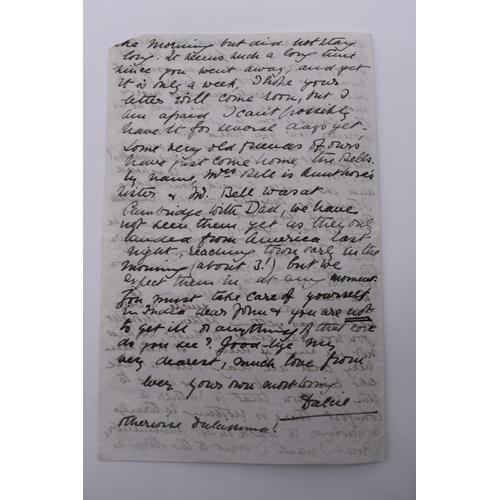 the Morning but did not stay
long. It seems such a long time
since you went away, and yet
it is only a week. I hope your
letter will come soon, but I
am afraid I can't possibly
have it for several days yet.
Some very old friends of ours
have just come home, the Bells.
by name, Mrs Bell is Aunt
sister & Mr. Bell was at
Cambridge with Dad, we have
not seen them yet as they only
landed from America last
night, reaching town early in the
morning (about 3!) but we
expect them in at any moment.
You must take care of yourself
in India dear John & you are not
to get ill or anything of that sort
do you see? Good-bye my
very dearest, much love from
your own most loving
otherwise